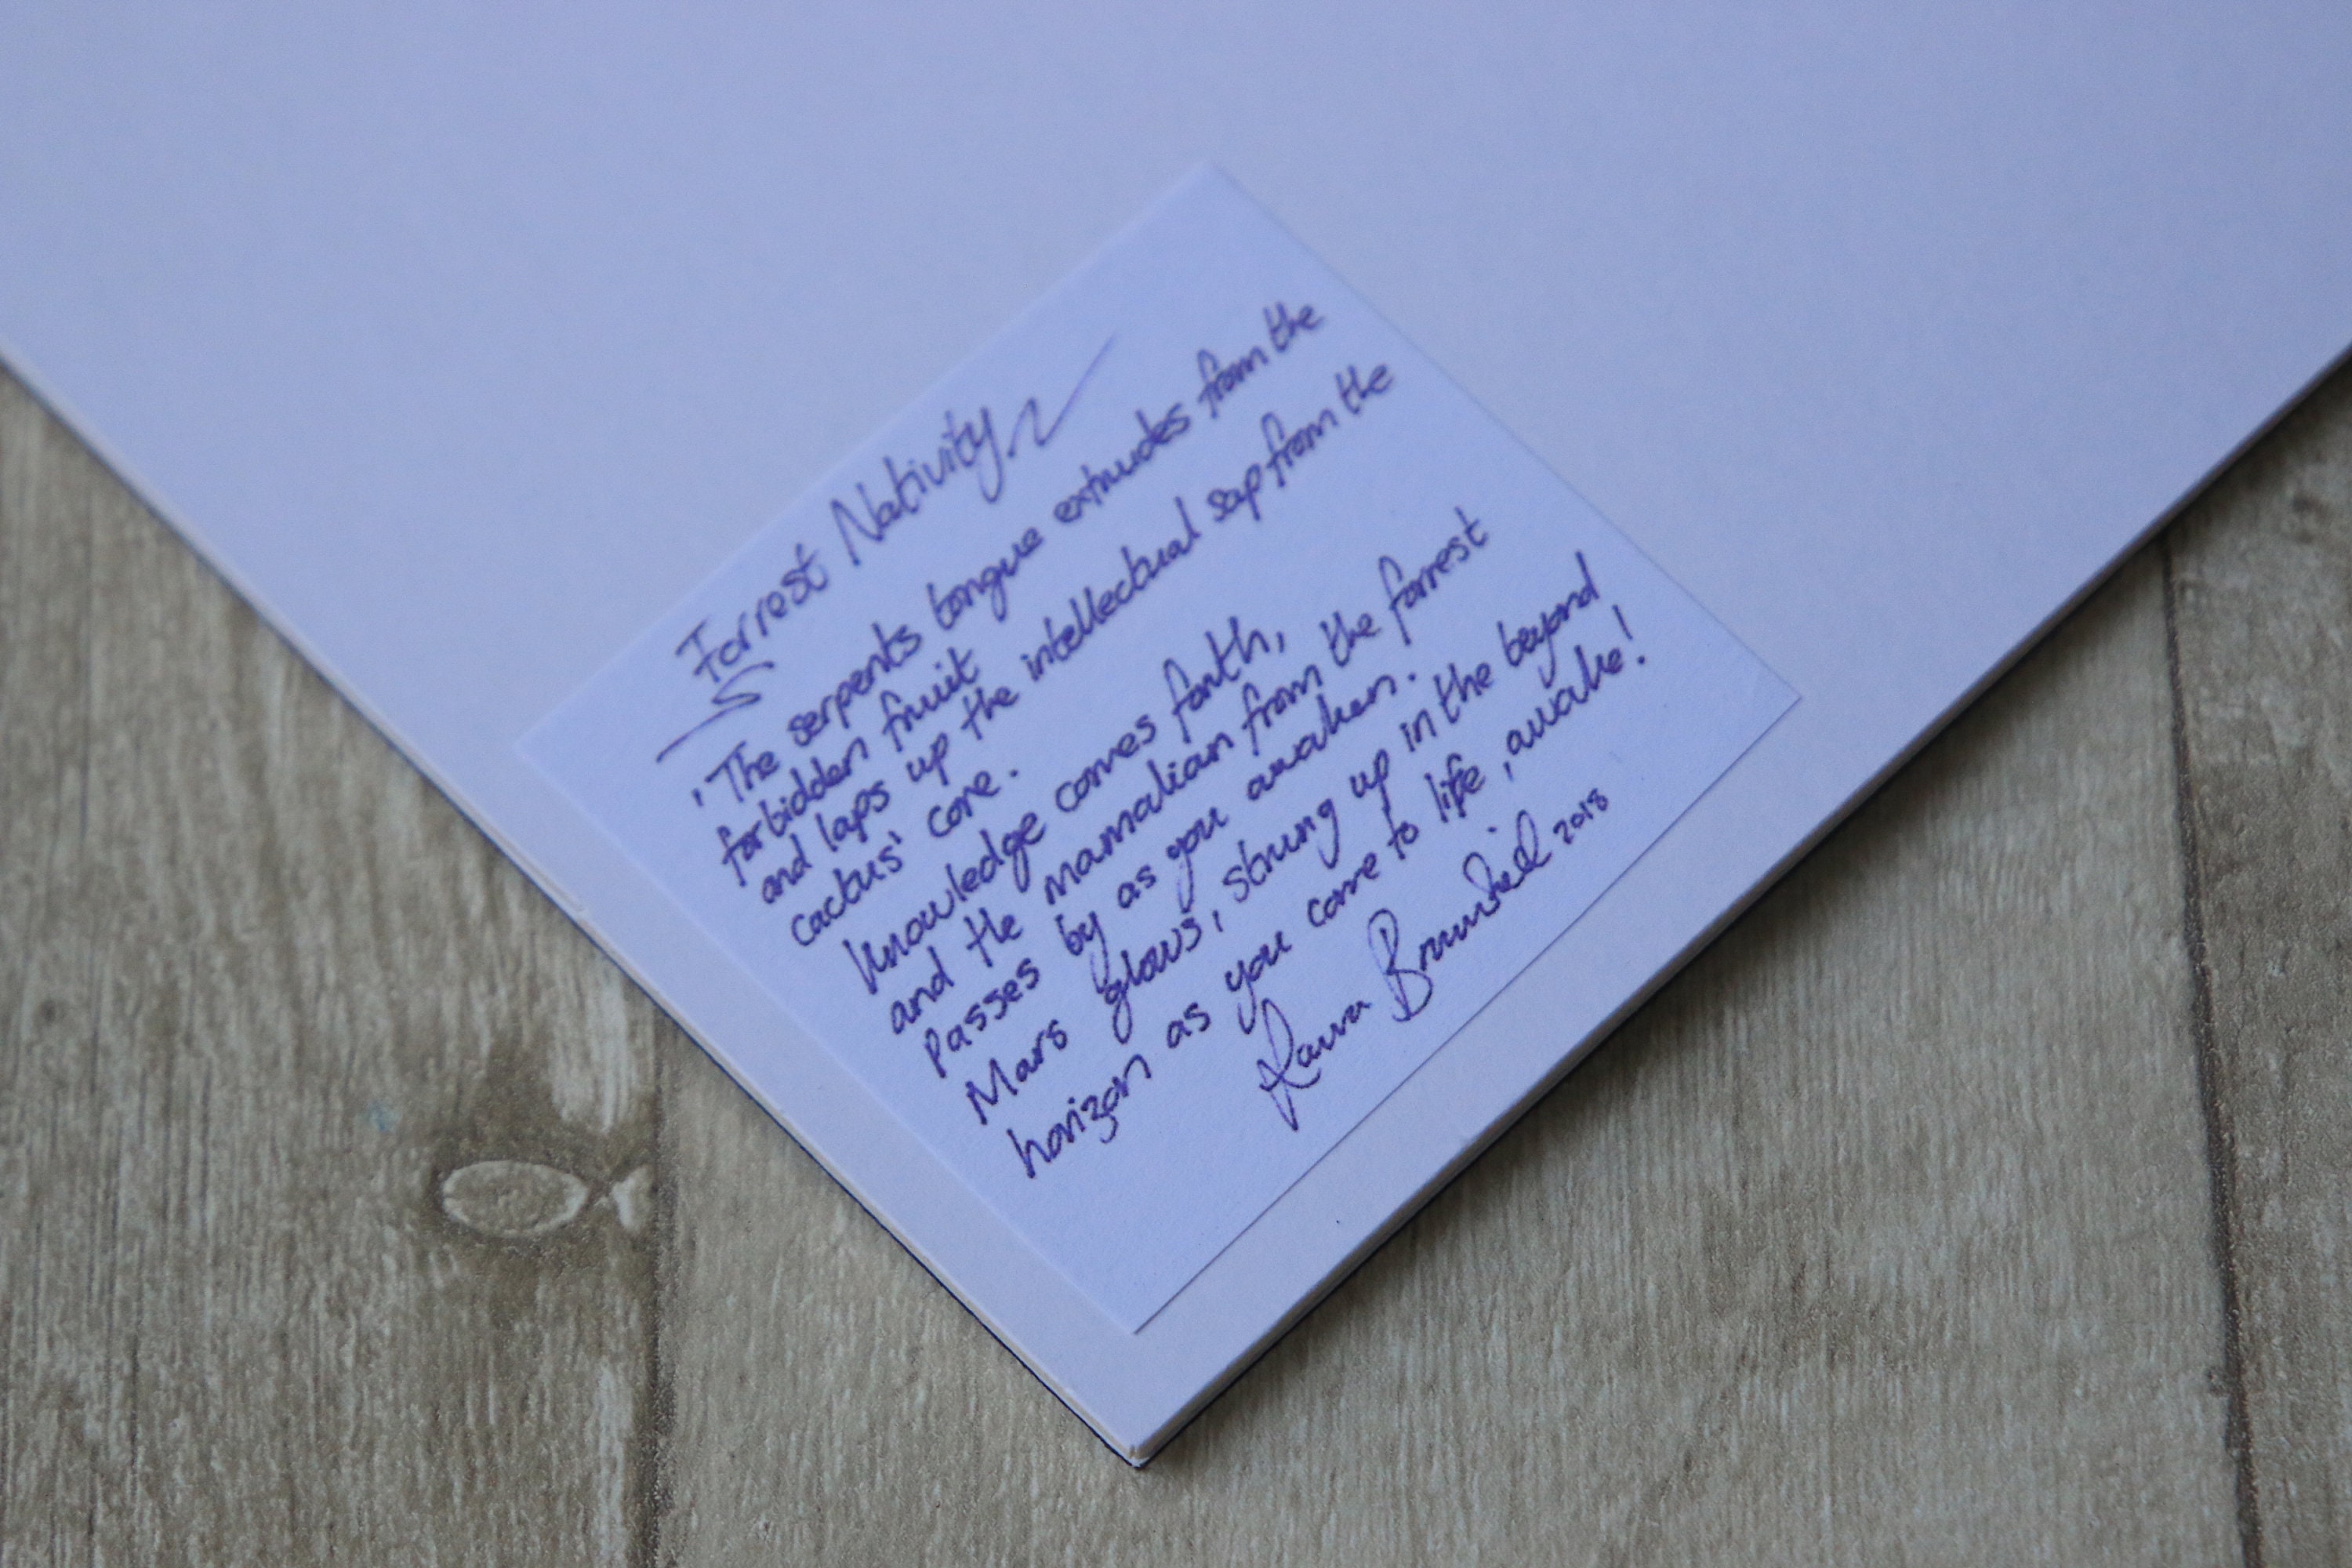 Forrest Nativity
'The serpents tongue extrudes from the
forbidden fruit
and laps up the intellectual sap from the
cactus' core.
Knowledge comes forth,
and the mamalian from the forrest
Passes by as you awaken.
Mars glows, strung up in the beyond
horizon as you come to life, awake!
Laura 2018